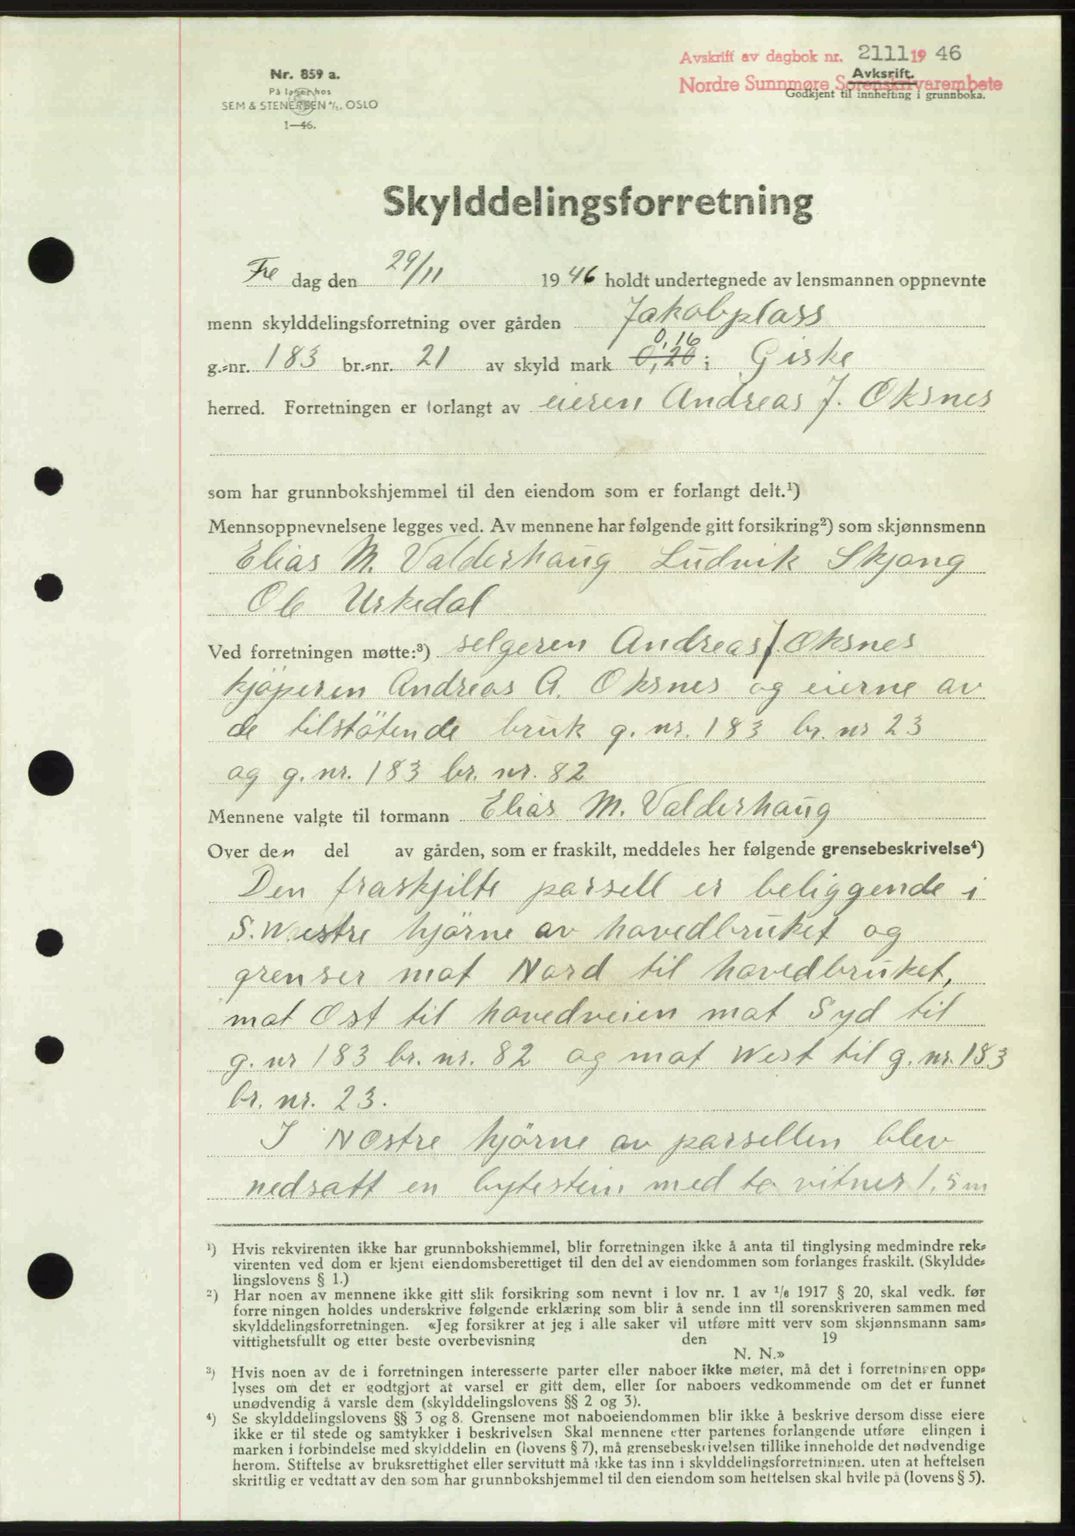 Nr. 859 a.
På lager hos
SEM & STENERSEN A/S. OSLO
1—46.
Avskrift av dagbok nr. 2111 1946
Avksrift.
Nordre Sunnmøre Sorenskrivarembete
Godkjent til innhefting i grunnboka.
Skylddelingsforretning
Fre dag den 29/11 1946 holdt undertegnede av lensmannen oppnevnte
menn skylddelingsforretning over gården Jakobplass
0,16
g.-nr. 183 br.-nr. 21 av skyld mark 0,20 i Giske
herred. Forretningen er forlangt av eieren Andreas J. Oksnes
som har grunnbokshjemmel til den eiendom som er forlangt delt.¹)
Mennsoppnevnelsene legges ved. Av mennene har følgende gitt forsikring²) som skjønnsmenn
Elias M. Valderhaug Ludvik Skjong
Ole Urkedal
Ved forretningen møtte:³) selgeren Andreas J. Oksnes
kjöperen Andreas A. Oksnes og eierne av
de tilstötende bruk g. nr. 183 br. nr 23
og g. nr. 183 br. nr. 82
Mennene valgte til formann Elias M. Valderhaug
Over den del av gården, som er fraskilt, meddeles her følgende grensebeskrivelse⁴)
Den fraskjilte parsell er beliggende i
S. Westre hjörne av hovedbruket og
grenser mot Nord til hovedbruket,
mot Ost til hovedveien mot Syd til
g. nr 183 br. nr. 82 og mot West til g. nr. 183
br. nr. 23.
I NOstre hjörne av parsellen blev
nedsatt en bytestein med to vitner 1,5 m
¹) Hvis rekvirenten ikke har grunnbokshjemmel, blir forretningen ikke å anta til tinglysing medmindre rek-
virenten ved dom er kjent eiendomsberettiget til den del av eiendommen som forlanges fraskilt. (Skyldde-
lingslovens § 1.)
²) Har noen av mennene ikke gitt slik forsikring som nevnt i lov nr. 1 av 1/6 1917 § 20, skal vedk. før
forretningen holdes underskrive følgende erklæring som blir å sende inn til sorenskriveren sammen med
skylddelingsforretningen. «Jeg forsikrer at jeg i alle saker vil utføre mitt verv som skjønnsmann sam-
vittighetsfullt og etter beste overbevisning den 19
N. N.»
³) Hvis noen av de i forretningen interesserte parter eller naboer ikke møter, må det i forretningen opp-
lyses om det er godtgjort at varsel er gitt dem, eller for naboers vedkommende om det er funnet
unødvendig å varsle dem (skylddelingslovens §§ 2 og 3).
⁴) Se skylddelingslovens §§ 3 og 8. Grensene mot naboeiendommen blir ikke å beskrive dersom disse eiere
ikke er til stede og samtykker i beskrivelsen Skal mennene etter partenes forlangende utføre elingen i
marken i forbindelse med skylddelin en (lovens § 7), må grensebeskrivelsen tillike inneholde det nødvendige
herom. Stiftelse av bruksrettighet eller servitutt må ikke tas inn i skylddelingsforretningen. uten at heftelsen
skriftlig er vedtatt av den som har grunnbokshjemmel til den eiendom som heftelsen skal hvile på (lovens § 5).